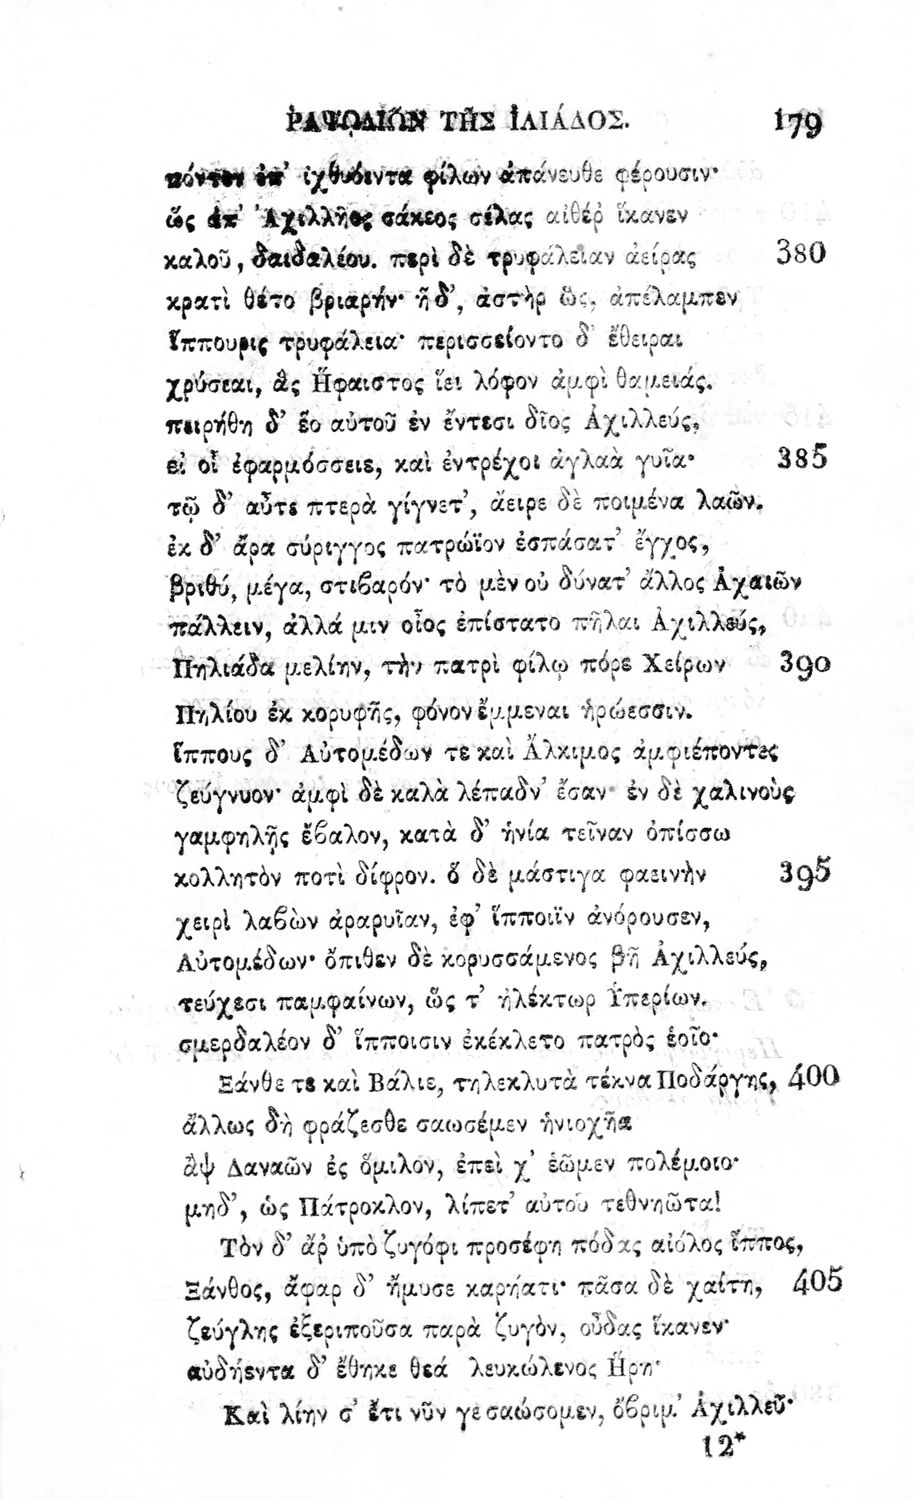 ῬΑΨΩΔΙΩ͂Ν ΤΗ͂Σ ἸΛΙΆΔΟΣ. 179
πόντον ἐπ’ ἰχθυόεντα φίλων ἀπάνευθε φέρουσιν·
ὣς ἀπ’ Ἀχιλλῆος σάκεος σέλας αἰθέρ ἵκανεν
καλοῦ, δαιδαλέου. περὶ δὲ τρυφάλειαν ἀείρας 380
κρατὶ θέτο βριαρήν· ἣ δ’, ἀστὴρ ὣς, ἀπέλαμπεν
ἵππουρις τρυφάλεια· περισσείοντο δ’ ἔθειραι
χρύσεαι, ἃς Ἥφαιστος ἵει λόφον ἀμφὶ θαμειάς.
πειρήθη δ’ ἕο αὐτοῦ ἐν ἔντεσι δῖος Ἀχιλλεύς,
εἰ οἷ ἐφαρμόσσειε, καὶ ἐντρέχοι ἀγλαὰ γυῖα· 385
τῷ δ’ αὖτε πτερὰ γίγνετ’, ἄειρε δὲ ποιμένα λαῶν.
ἐκ δ’ ἄρα σύριγγος πατρώϊον ἐσπάσατ’ ἔγχος,
βριθύ, μέγα, στιβαρόν· τὸ μὲν οὐ δύνατ’ ἄλλος Ἀχαιῶν
πάλλειν, ἀλλά μιν οἶος ἐπίστατο πῆλαι Ἀχιλλεύς,
Πηλιάδα μελίην, τὴν πατρὶ φίλῳ πόρε Χείρων 390
Πηλίου ἐκ κορυφῆς, φόνον ἔμμεναι ἡρώεσσιν.
ἵππους δ’ Αὐτομέδων τε καὶ Ἄλκιμος ἀμφιέποντες
ζεύγνυον· ἀμφὶ δὲ καλὰ λέπαδν’ ἔσαν· ἐν δὲ χαλινοὺς
γαμφηλῇς ἔβαλον, κατὰ δ’ ἡνία τεῖναν ὀπίσσω
κολλητὸν ποτὶ δίφρον. ὃ δὲ μάστιγα φαεινὴν 395
χειρὶ λαβὼν ἀραρυῖαν, ἐφ’ ἵπποιϊν ἀνόρουσεν,
Αὐτομέδων· ὄπιθεν δὲ κορυσσάμενος βῆ Ἀχιλλεύς,
τεύχεσι παμφαίνων, ὥς τ’ ἠλέκτωρ Ὑπερίων.
σμερδαλέον δ’ ἵπποισιν ἐκέκλετο πατρὸς ἑοῖο·
Ξάνθε τε καὶ Βάλιε, τηλεκλυτὰ τέκνα Ποδάργης, 400
ἄλλως δὴ φράζεσθε σαωσέμεν ἡνιοχῆα
ἂψ Δαναῶν ἐς ὅμιλον, ἐπεὶ χ’ ἑῶμεν πολέμοιο·
μηδ’, ὡς Πάτροκλον, λίπετ’ αὐτοῦ τεθνηῶτα!
Τὸν δ’ ἄρ ὑπὸ ζυγόφι προσέφη πόδας αἰόλος ἵππος,
Ξάνθος, ἄφαρ δ’ ἤμυσε καρήατι· πᾶσα δὲ χαίτη, 405
ζεύγλης ἐξεριποῦσα παρὰ ζυγὸν, οὖδας ἵκανεν·
αὐδήεντα δ’ ἔθηκε θεά λευκώλενος Ἥρη·
Καὶ λίην σ’ ἔτι νῦν γε σαώσομεν, ὄβριμ’ Ἀχιλλεῦ·
12*